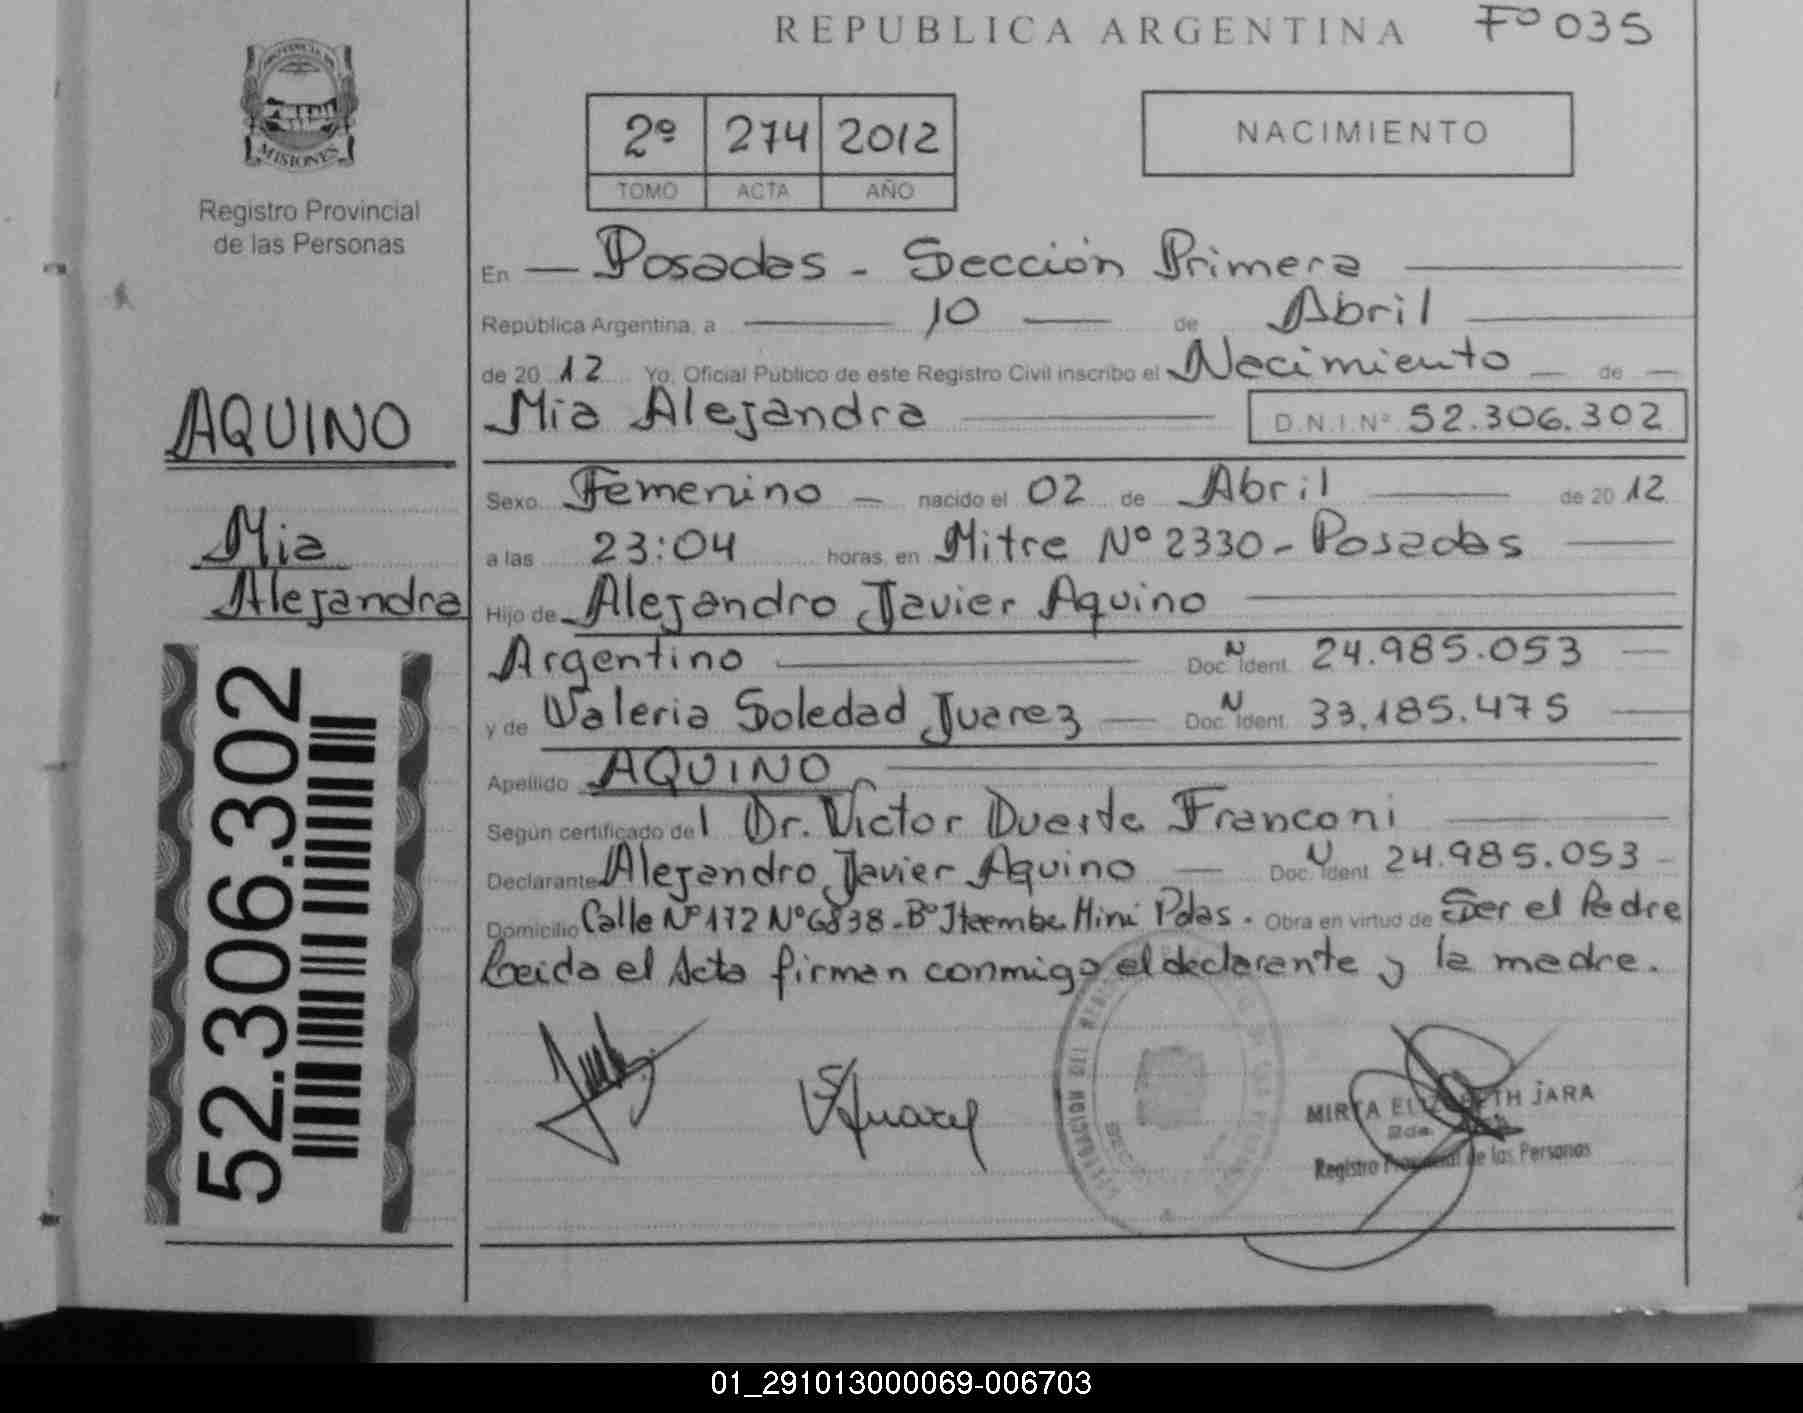 REPUBLICA ARGENTINA Fº 035
PROVINCIA DE
MISIONES
Registro Provincial
de las Personas
2º 274 2012
TOMO ACTA AÑO
NACIMIENTO
En Posadas - Sección Primera
República Argentina, a 10 de Abril
de 2012 Yo, Oficial Público de este Registro Civil inscribo el Nacimiento de
AQUINO
Mia Alejandra D.N.I. Nº 52.306.302
Sexo Femenino nacido el 02 de Abril de 2012
Mia
Alejandra
a las 23:04 horas, en Mitre Nº 2330 - Posadas
Hijo de Alejandro Javier Aquino
Argentino Doc. N Ident. 24.985.053
y de Valeria Soledad Juarez Doc. N Ident. 33.185.475
Apellido AQUINO
Según certificado del Dr. Victor Duarte Franconi
Declarante Alejandro Javier Aquino Doc. N Ident. 24.985.053
Domicilio Calle Nº 172 Nº 6838 - Bº Itaembe Mini Pdas. Obra en virtud de Ser el Padre
Leida el Acta firman conmigo el declarante y la madre.
52.306.302
VSJuarez
MIRTA ELIZABETH JARA
Registro Provincial de las Personas
01_291013000069-006703